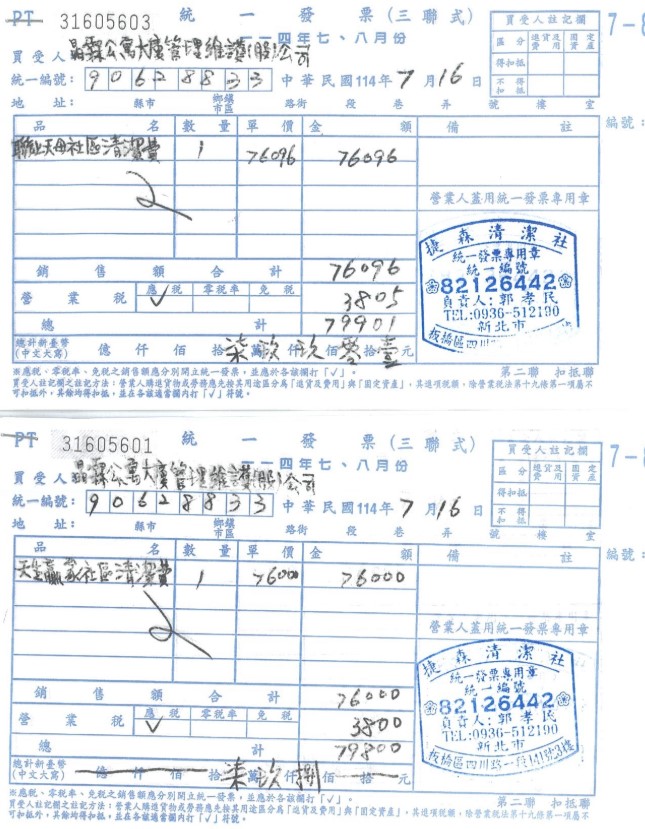 PT 31605603 統一發票(三聯式)
一一四年七、八月份
買受人註記欄
區分 進貨及費用 固定資產
得扣抵
不得扣抵
7-8
買受人 晶霖公寓大廈管理維護(股)公司
統一編號: 90628833 中華民國114年7月16日
地址: 縣市 鄉鎮市區 路街 段 巷 弄 號 樓 室
品名 數量 單價 金額 備註
編號:
天母社區清潔費 1 76096 76096
營業人蓋用統一發票專用章
銷售額合計 76096
營業稅 應稅 ✓ 零稅率 免稅 3805
總計 79901
總計新臺幣(中文大寫) 億 仟 佰 拾 柒 萬 玖 仟 玖 佰 零 拾 壹 元
捷森清潔社
統一發票專用章
統一編號
82126442
負責人:郭孝民
TEL:0936-512190
新北市
板橋區四川
第二聯 扣抵聯
※應稅、零稅率、免稅之銷售額應分別開立統一發票,並應於各該欄打「✓」。
買受人註記欄之註記方法:營業人購進貨物或勞務應先按其用途區分為「進貨及費用」與「固定資產」,其進項稅額,除營業稅法第十九條第一項屬不
可扣抵外,其餘均得扣抵,並在各該適當欄內打「✓」符號。
PT 31605601 統一發票(三聯式)
一一四年七、八月份
買受人註記欄
區分 進貨及費用 固定資產
得扣抵
不得扣抵
7-8
買受人 晶霖公寓大廈管理維護(股)公司
統一編號: 90628833 中華民國114年7月16日
地址: 縣市 鄉鎮市區 路街 段 巷 弄 號 樓 室
品名 數量 單價 金額 備註
編號:
贏家社區清潔費 1 76000 76000
營業人蓋用統一發票專用章
銷售額合計 76000
營業稅 應稅 ✓ 零稅率 免稅 3800
總計 79800
總計新臺幣(中文大寫) 億 仟 佰 拾 柒 萬 玖 仟 捌 佰 拾 元
捷森清潔社
統一發票專用章
統一編號
82126442
負責人:郭孝民
TEL:0936-512190
新北市
板橋區四川路一段141號3樓
第二聯 扣抵聯
※應稅、零稅率、免稅之銷售額應分別開立統一發票,並應於各該欄打「✓」。
買受人註記欄之註記方法:營業人購進貨物或勞務應先按其用途區分為「進貨及費用」與「固定資產」,其進項稅額,除營業稅法第十九條第一項屬不
可扣抵外,其餘均得扣抵,並在各該適當欄內打「✓」符號。